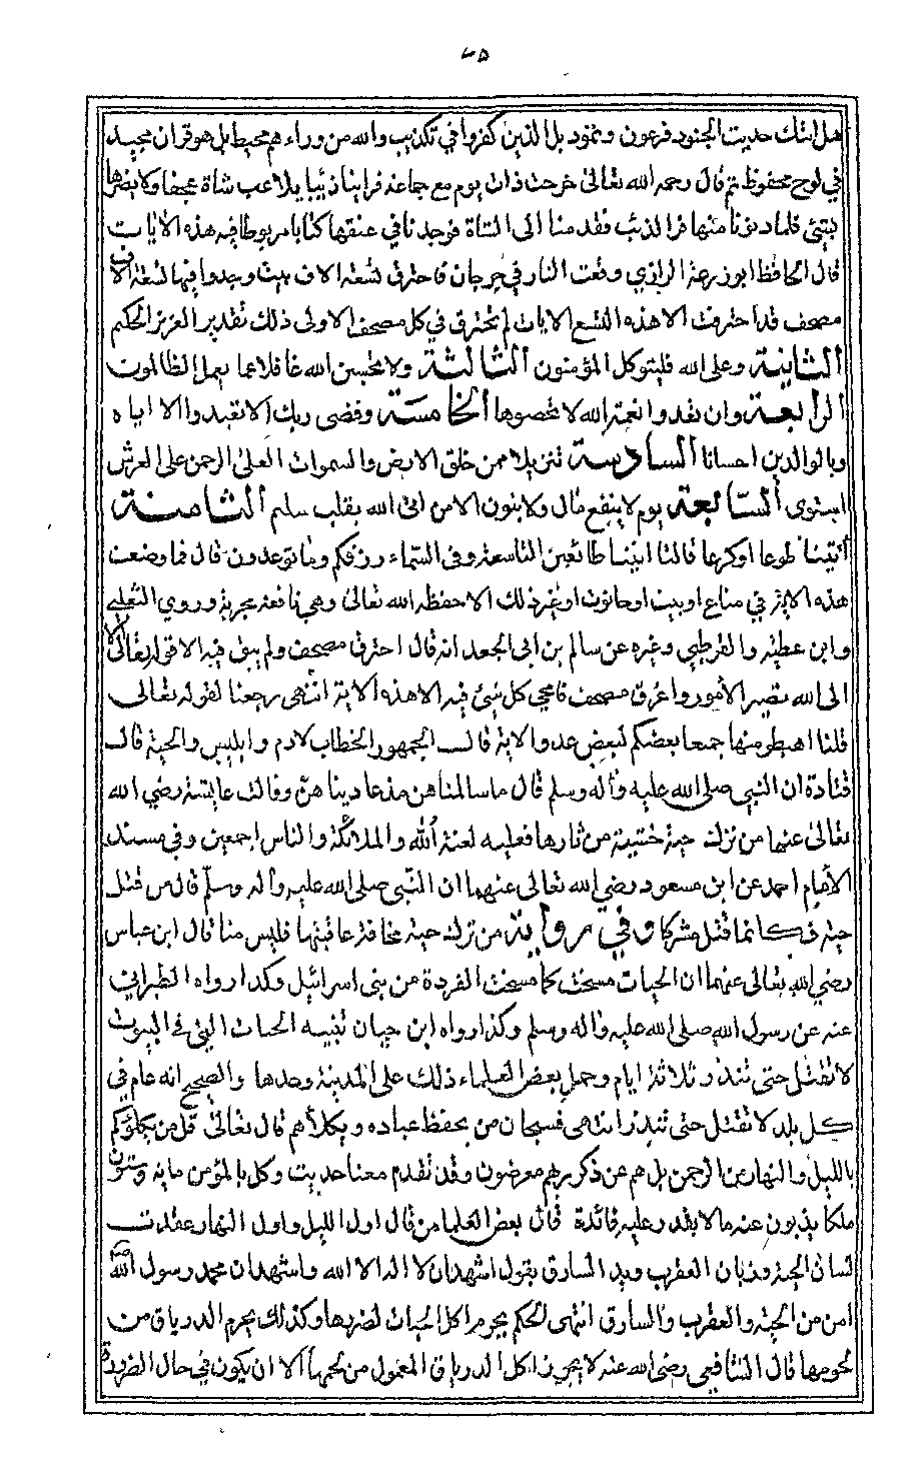 ٦٥
هل اتيك حديث الجنود فرعون وثمود بل الذين كفروا في تكذيب والله من وراءهم محيط بل هو قران مجيد
في لوح محفوظ ثم قال رحمه الله تعالى خرجت ذات يوم مع جماعة فراينا ذئبا يلاعب شاة عجفا ولا يضرها
بشئ فلما دنونا منها فر الذئب فتقدمنا الى الشاة فوجدنا في عنقها كتابا مربوطا فيه هذه الآيات
قال الحافظ ابو زرعة الرازي وقعت النار في جرجان فاحترق تسعة الاف بيت وجدوا فيها تسعة الاف
مصحف قد احترقت الا هذه التسع الايات لم تحترق في كل مصحف الاولى ذلك تقدير العزيز الحكيم
الثانية وعلى الله فليتوكل المؤمنون الثالثة ولا تحسبن الله غافلا عما يعمل الظالمون
الرابعة وان تعدوا نعمة الله لا تحصوها الخامسة وقضى ربك الا تعبدوا الا اياه
وبالوالدين احسانا السادسة تنزيلا ممن خلق الارض والسموات العلى الرحمن على العرش
استوى السابعة يوم لا ينفع مال ولا بنون الا من اتى الله بقلب سليم الثامنة
أتيتنا طوعا او كرها قالتا اتينا طائعين التاسعة وفي السماء رزقكم وما توعدون قال فما وضعت
هذه الاية في متاع او بيت او حانوت او غير ذلك الا حفظه الله تعالى وهي نافعة مجربة وروي الثعلبي
وابن عطية والقرطبي وغيره عن سالم بن ابى الجعد انه قال احترق مصحف ولم يبق فيه الا قوله تعالى الا
الى الله تصير الأمور واغرق مصحف فامحي كل شئ فيه الا هذه الاية انتهى رجعنا لقوله تعالى
قلنا اهبطوا منها جمعا بعضكم لبعض عدو الاية قالت الجمهور الخطاب لادم وابليس والحية قال
قتادة ان النبي صلى الله عليه وآله وسلم قال ما سالمناهن منذ عاديناهن وقالت عايشة رضي الله
تعالى عنها من ترك حية خشية من ثارها فعليه لعنة الله والملائكة والناس اجمعين وفي مسند
الامام احمد عن ابن مسعود رضي الله تعالى عنهما ان النبى صلى الله عليه وآله وسلم قال من قتل
حية فكانما قتل مشركا وفي رواية من ترك حية مخافة عاقبتها فليس منا قال ابن عباس
رضي الله تعالى عنهما ان الحيات مسخت كما مسخت القردة من بنى اسرائيل وكذا رواه الطبراني
عنه عن رسول الله صلى الله عليه وآله وسلم وكذا رواه ابن حبان تنبيه الحيات التي في البيوت
لا تقتل حتى تنذر ثلاثة ايام وحمل بعض العلماء ذلك على المدينة وحدها والصحيح انه عام في
كل بلد لا تقتل حتى تنذر انتهى فسبحان من يحفظ عباده ويكلأهم قال تعالى قل من يكلؤكم
بالليل والنهار من الرحمن بل هم عن ذكر ربهم معرضون وقد تقدم معنا حديث وكل بالمؤمن مايه وستون
ملكا يذبون عنه ما لا يقدر عليه فائدة قال بعض العلما من قال اول الليل واول النهار عقدت
لسان الحية وذبان العقرب ويد السارق بقول اشهد ان لا اله الا الله واشهد ان محمد رسول الله
امن من الحية والعقرب والسارق انتهى الحكم يحرم اكل الحيات لضررها وكذلك يحرم الدرياق من
لحومها قال الشافعي رضي الله عنه لا يجوز اكل الدرياق المعمول من لحمها الا ان يكون في حال الضرورة